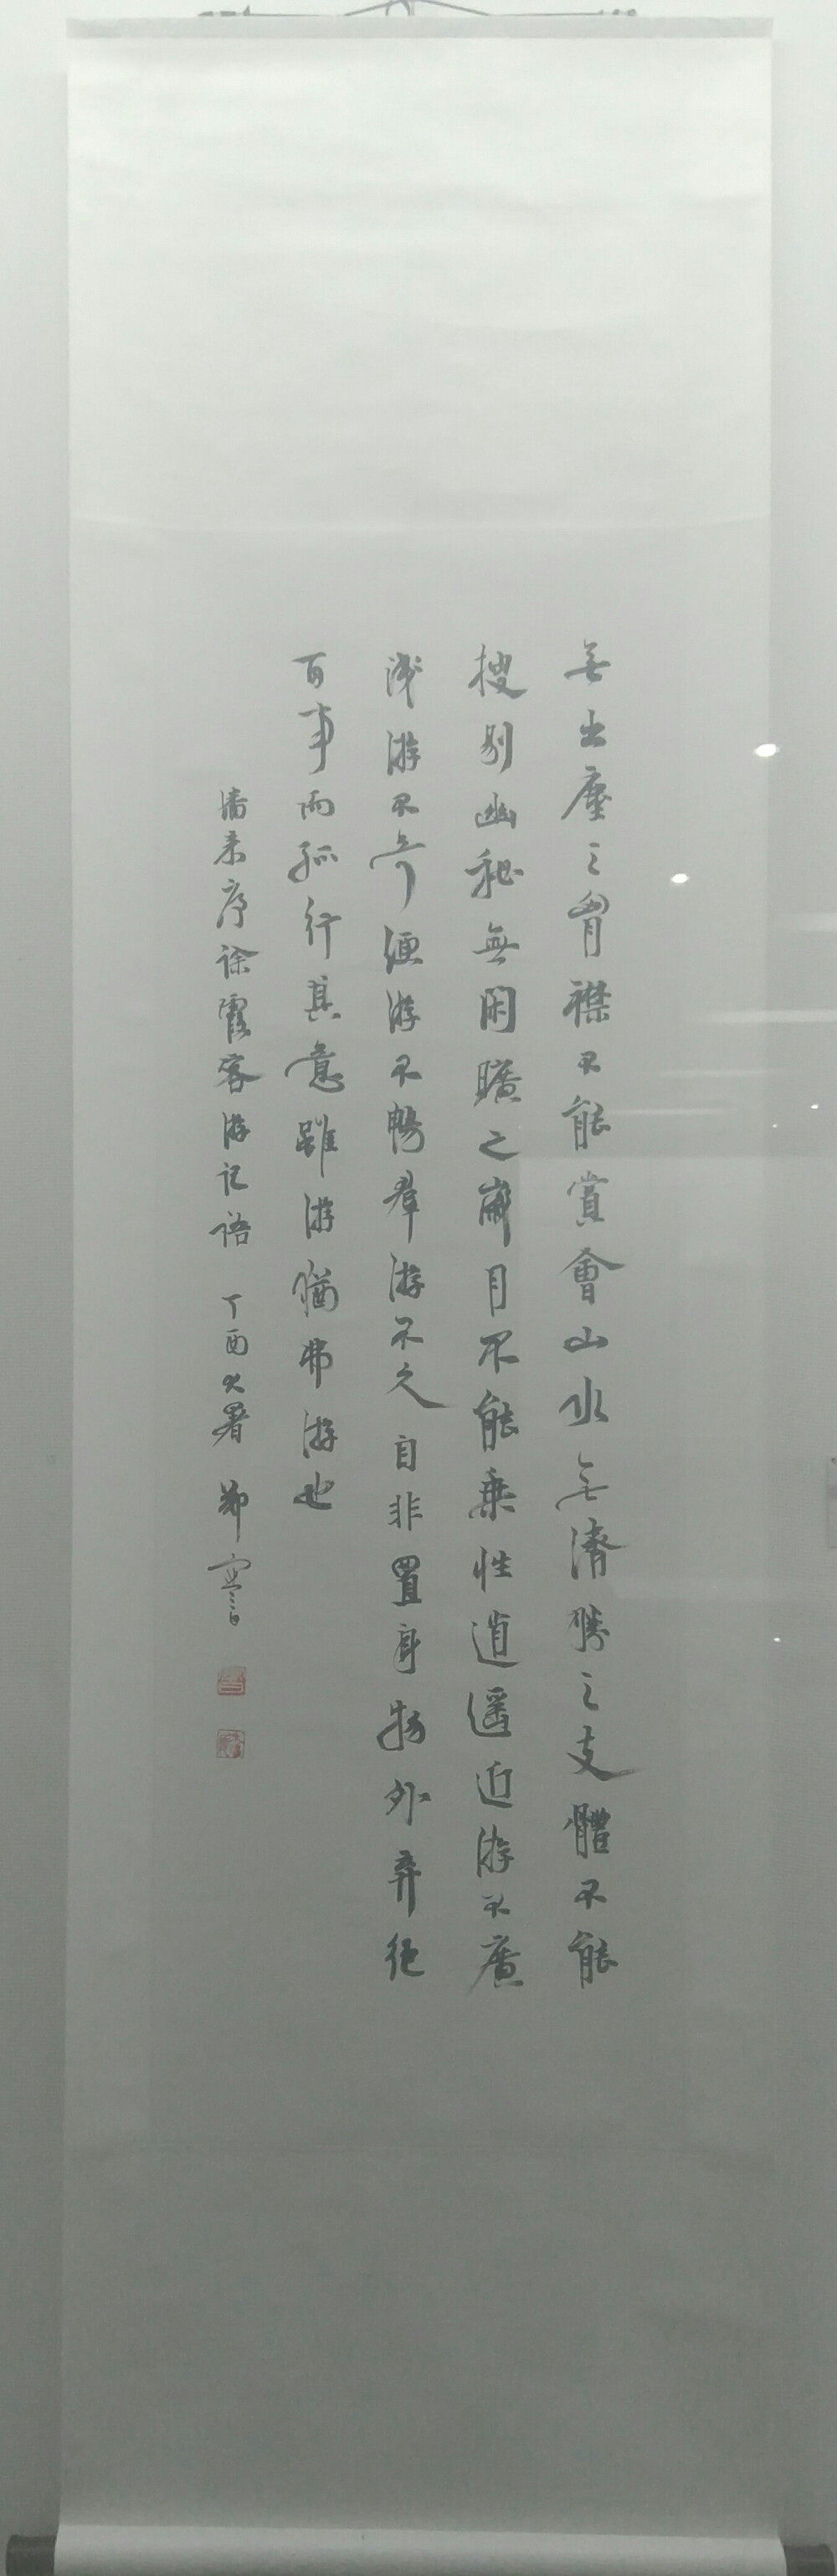 無出塵之胷襟不能賞會山水無濟勝之支體不能
搜剔幽秘無閑曠之歲月不能乘性逍遥近游不廣
淺游不奇便游不暢羣游不久自非置身物外弃絕
百事而孤行其意雖游猶弗游也
潘耒序徐霞客游记語 丁酉大暑 鄭